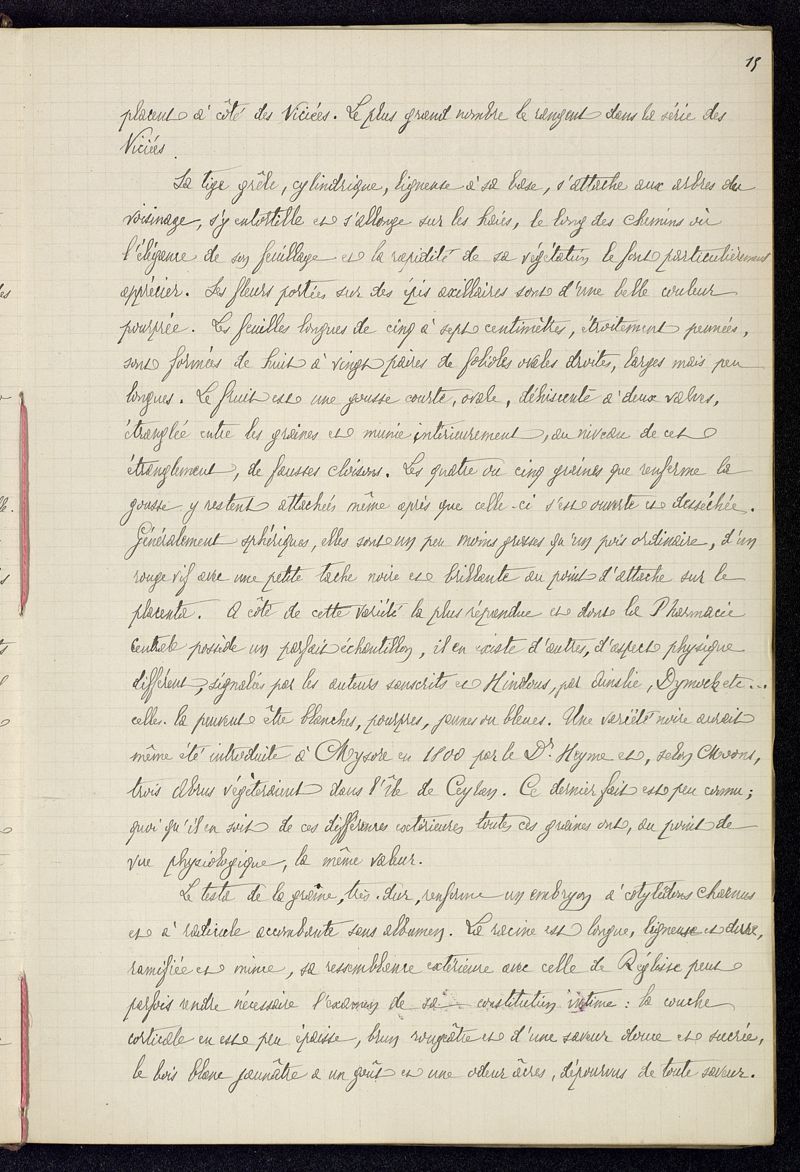 15
placent à côté des Viciées. Le plus grand nombre le rangent dans la série des
Viciées.
La tige grêle, cylindrique, ligneuse à sa base, s'attache aux arbres du
voisinage, s'y entortille et s'allonge sur les haies, le long des chemins où
l'élégance de son feuillage et la rapidité de sa végétation le font particulièrement
apprécier. Les fleurs portées sur des épis axillaires sont d'une belle couleur
pourprée. Les feuilles longues de cinq à sept centimètres, étroitement pennées,
sont formées de huit à vingt paires de folioles ovales droites, larges mais peu
longues. Le fruit est une gousse courte, ovale, déhiscente à deux valves,
étranglée entre les graines et munie intérieurement, au niveau de cet
étranglement, de fausses cloisons. Les quatre ou cinq graines que renferme la
gousse y restent attachées même après que celle-ci s'est ouverte et desséchée.
Généralement sphériques, elles sont un peu moins grosses qu'un pois ordinaire, d'un
rouge vif avec une petite tache noire et brillante au point d'attache sur le
placenta. A côté de cette variété la plus répandue et dont la Pharmacie
Centrale possède un parfait échantillon, il en existe d'autres, d'aspect physique
différent, signalés par les auteurs sanscrits et Hindous, par Ainslie, Dymock etc...
celles-là peuvent être blanches, pourpres, jaunes ou bleues. Une variété noire aurait
même été introduite à Mysore en 1800 par le Dr Heyme et, selon Moons,
trois Abrus végèteraient dans l'Île de Ceylan. Ce dernier fait est peu connu;
quoi qu'il en soit de ces différences extérieures toutes ces graines ont, au point de
vue physiologique, la même valeur.
Le testa de la graine, très-dur, renferme un embryon à cotylédons charnus
et à radicule accombante sans albumen. La racine est longue, ligneuse et dure,
ramifiée et mince, sa ressemblance extérieure avec celle de Réglisse peut
parfois rendre nécessaire l'examen de sa constitution intime: la couche
corticale en est peu épaisse, brun rougeâtre et d'une saveur douce et sucrée,
le bois blanc jaunâtre a un goût et une odeur âcres, dépourvus de toute saveur.